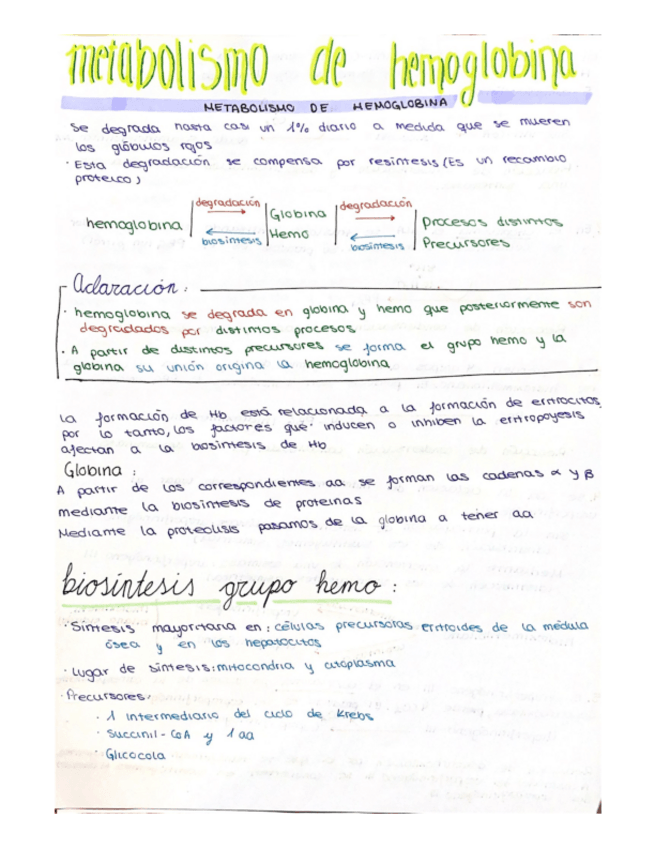 metabolismo de hemoglobina
METABOLISMO DE HEMOGLOBINA
Se degrada hasta casi un 1% diario a medida que se mueren
los glóbulos rojos
· Esta degradación se compensa por resíntesis (Es un recambio
proteico)
hemoglobina degradación biosíntesis Globina Hemo degradación biosíntesis Procesos distintos Precursores
Aclaración:
· hemoglobina se degrada en globina y hemo que posteriormente son
degradados por distintos procesos
· A partir de distintos precursores se forma el grupo hemo y la
globina su unión origina la hemoglobina
La formación de Hb está relacionada a la formación de eritrocitos,
por lo tanto, los factores que inducen o inhiben la eritropoyesis
afectan a la biosíntesis de Hb
Globina:
A partir de los correspondientes aa se forman las cadenas α y β
mediante la biosíntesis de proteínas
Mediante la proteolisis pasamos de la globina a tener aa
biosíntesis grupo hemo:
· Síntesis mayoritaria en: células precursoras eritroides de la médula
ósea y en los hepatocitos
· Lugar de síntesis: mitocondria y citoplasma
· Precursores:
· 1 intermediario del ciclo de Krebs
· Succinil-CoA y 1 aa
· Glicocola